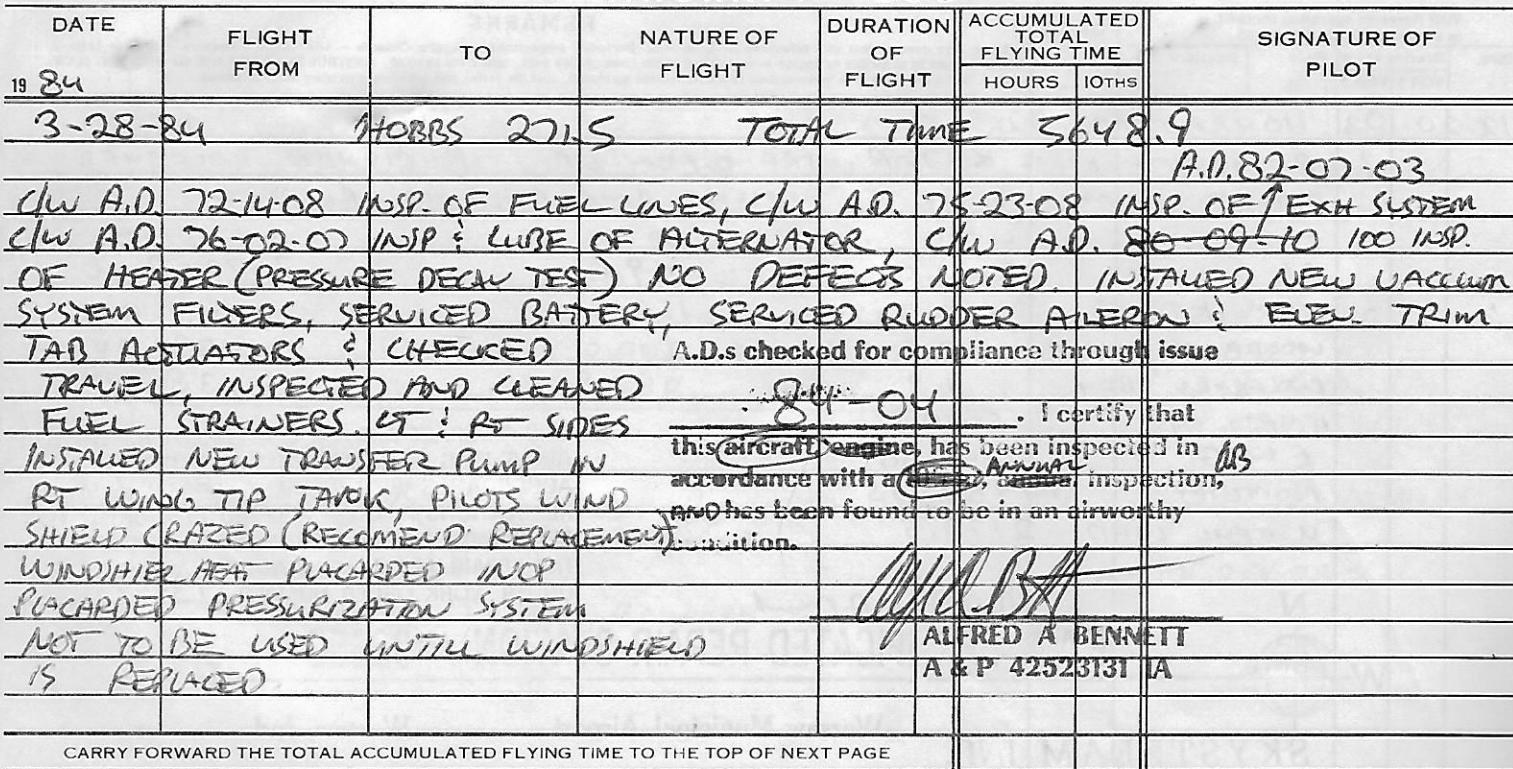 DATE FLIGHT FROM TO NATURE OF FLIGHT DURATION OF FLIGHT ACCUMULATED TOTAL FLYING TIME HOURS 10THS SIGNATURE OF PILOT
19 84
3-28-84 HOBBS 271.5 TOTAL TIME 5648.9
A.D. 82-07-03
C/W A.D. 72-14-08 INSP. OF FUEL LINES, C/W A.D. 75-23-08 INSP. OF ↑ EXH SYSTEM
C/W A.D. 76-02-07 INSP & LUBE OF ALTERNATOR, C/W A.D. 80-09-10 100 INSP.
OF HEATER (PRESSURE DECAY TEST) NO DEFECTS NOTED. INSTALLED NEW VACCUUM
SYSTEM FILTERS, SERVICED BATTERY, SERVICED RUDDER AILERON & ELEV. TRIM
TAB ACTUATORS & CHECKED
TRAVEL, INSPECTED AND CLEANED
FUEL STRAINERS. LT & RT SIDES
INSTALLED NEW TRANSFER PUMP IN
RT WING TIP TANK, PILOTS WIND
SHIELD CRAZED (RECOMEND REPLACEMENT)
WINDSHIEL HEAT PLACARDED INOP
PLACARDED PRESSURIZATION SYSTEM
NOT TO BE USED UNTILL WINDSHIELD
IS REPLACED.
A.D.s checked for compliance through issue
84-04 . I certify that
this aircraft engine, has been inspected in
accordance with a ANNUAL, annual inspection, AB
AND has been found to be in an airworthy
condition.
ALFRED A BENNETT
A & P 42523131 IA
CARRY FORWARD THE TOTAL ACCUMULATED FLYING TIME TO THE TOP OF NEXT PAGE